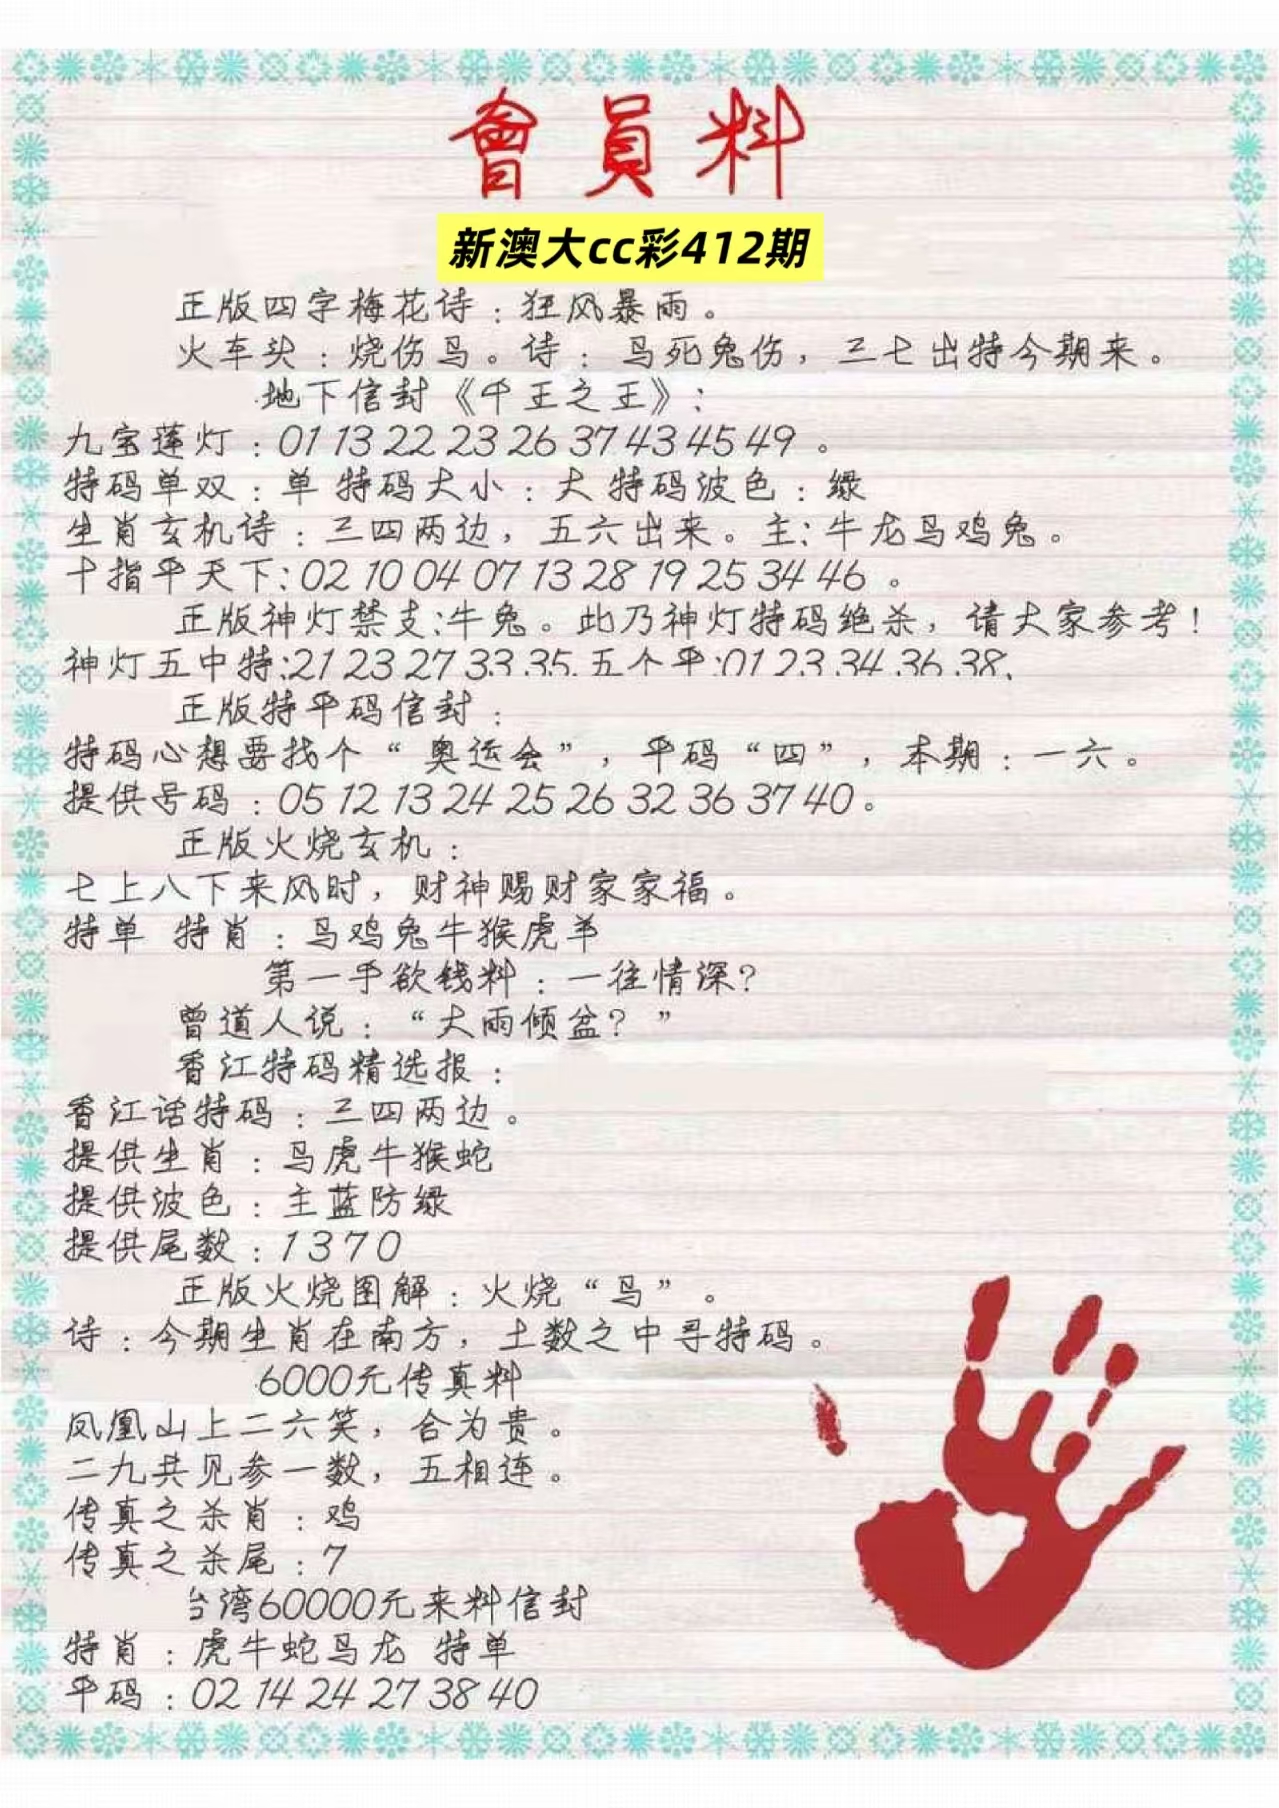 會員料
新澳大cc彩412期
正版四字梅花诗：狂风暴雨。
火车头：烧伤马。诗：马死兔伤，三七出特今期来。
地下信封《千王之王》：
九宝莲灯：01 13 22 23 26 37 43 45 49 。
特码单双：单 特码大小：大 特码波色：绿
生肖玄机诗：三四两边，五六出来。主：牛龙马鸡兔。
十指平天下：02 10 04 07 13 28 19 25 34 46 。
正版神灯禁支：牛兔。此乃神灯特码绝杀，请大家参考！
神灯五中特：21 23 27 33 35. 五个平：01 23 34 36 38.
正版特平码信封：
特码心想要找个“奥运会”，平码“四”，本期：一六。
提供号码：05 12 13 24 25 26 32 36 37 40。
正版火烧玄机：
七上八下来风时，财神赐财家家福。
特单 特肖：马鸡兔牛猴虎羊
第一手欲钱料：一往情深？
曾道人说：“大雨倾盆？”
香江特码精选报：
香江话特码：三四两边。
提供生肖：马虎牛猴蛇
提供波色：主蓝防绿
提供尾数：1 3 7 0
正版火烧图解：火烧“马”。
诗：今期生肖在南方，土数之中寻特码。
6000元传真料
凤凰山上二六笑，合为贵。
二九共见参一数，五相连。
传真之杀肖：鸡
传真之杀尾：7
台湾60000元来料信封
特肖：虎牛蛇马龙 特单
平码：02 14 24 27 38 40